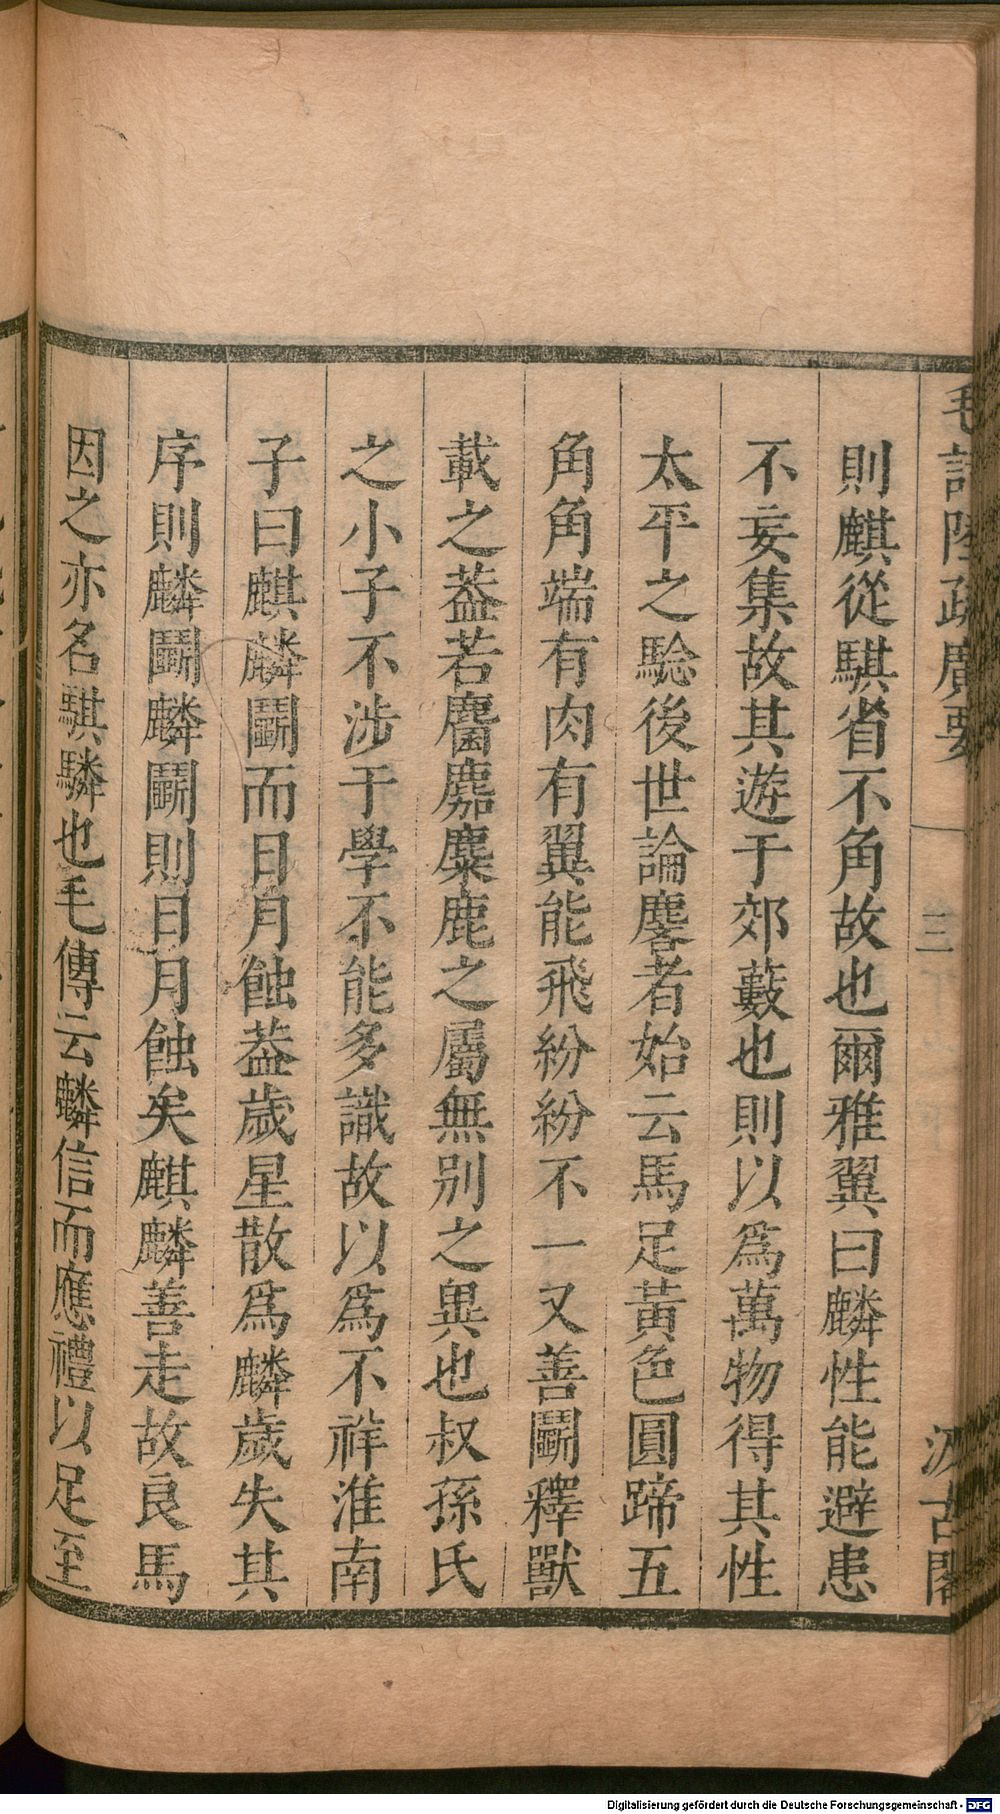 毛詩陸疏廣要
三
汲古閣
則麒從騏省不角故也爾雅翼曰麟性能避患
不妄集故其遊于郊藪也則以爲萬物得其性
太平之驗後世論麐者始云馬足黃色圓蹄五
角角端有肉有翼能飛紛紛不一又善鬭釋獸
載之葢若麕麚麋鹿之屬無别之異也叔孫氏
之小子不涉于學不能多識故以爲不祥淮南
子曰麒麟鬭而日月蝕葢歲星散爲麟歲失其
序則麟鬭麟鬭則日月蝕矣麒麟善走故良馬
因之亦名騏驎也毛傳云麟信而應禮以足至
Digitalisierung gefördert durch die Deutsche Forschungsgemeinschaft - DFG